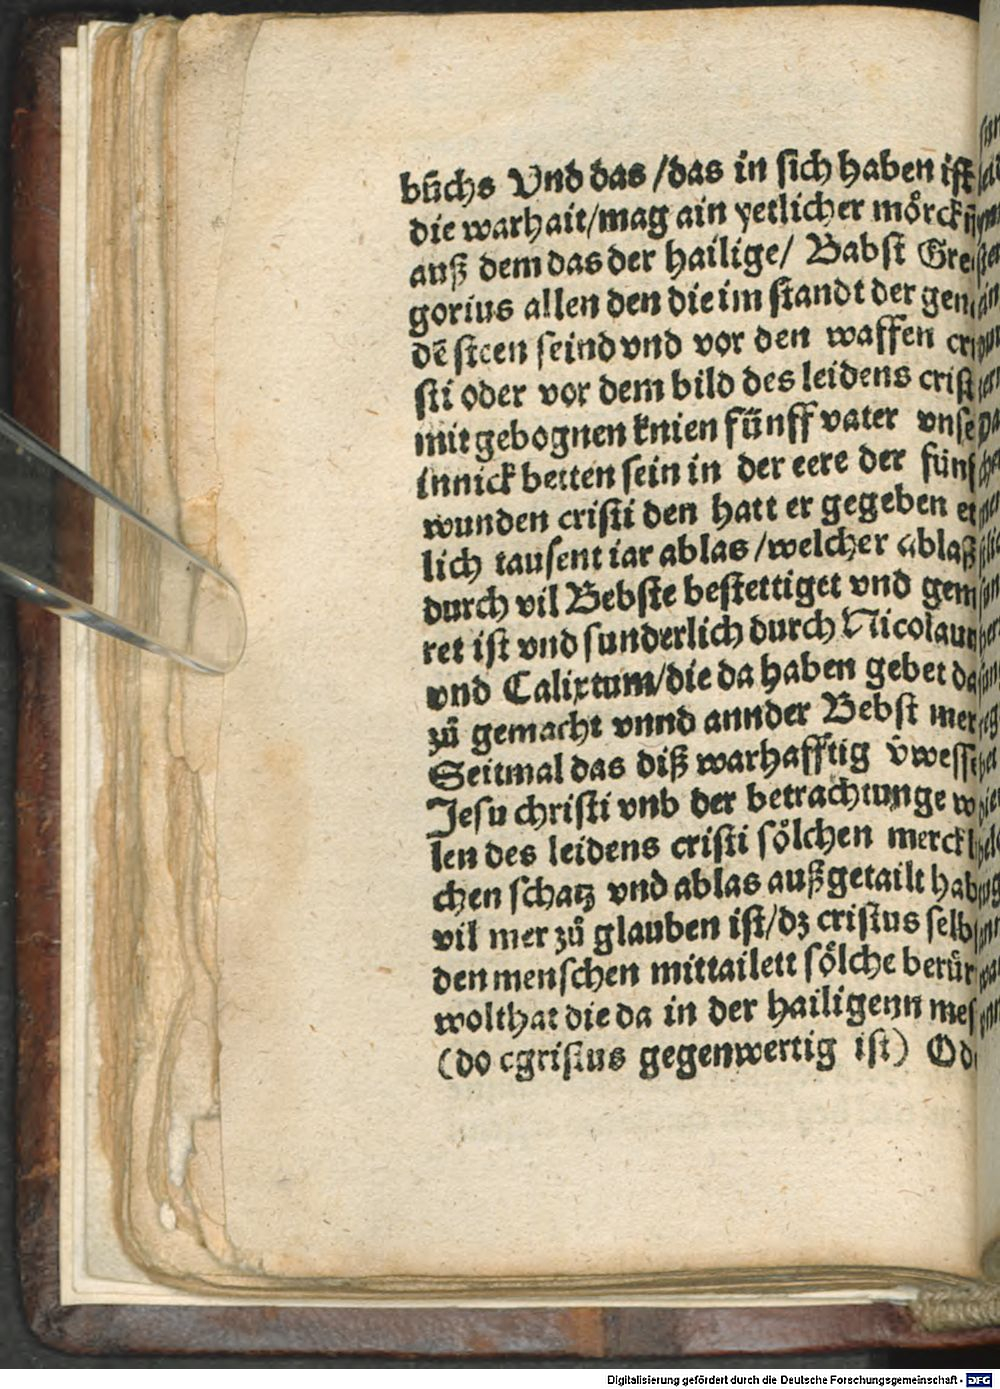 bůchs Vnd das /das in sich haben ist
die warhait/mag ain yetlicher mörck
auß dem das der hailige/ Babst Gre
gorius allen den die im standt der gen
dē steen seind vnd vor den waffen cri
sti oder vor dem bild des leidens crist
mit gebognen knien fünff vater vnse
innick betten sein in der eere der fünf
wunden cristi den hatt er gegeben et
lich tausent iar ablas /welcher ablaß
durch vil Bebste bestettiget vnd gem
ret ist vnd sunderlich durch Nicolaum
vnd Calixtum/die da haben gebet da
zů gemacht vnnd annder Bebst mer
Seitmal das diß warhafftig v̄wess
Jesu christi vnb der betrachtunge w
len des leidens cristi sölchen merckl
chen schatz vnd ablas außgetailt hab
vil mer zů glauben ist/dz cristus selb
den menschen mittailett sölche berür
wolthat die da in der hailigenn mes
(do cgristus gegenwertig ist) Od
Digitalisierung gefördert durch die Deutsche Forschungsgemeinschaft - DFG